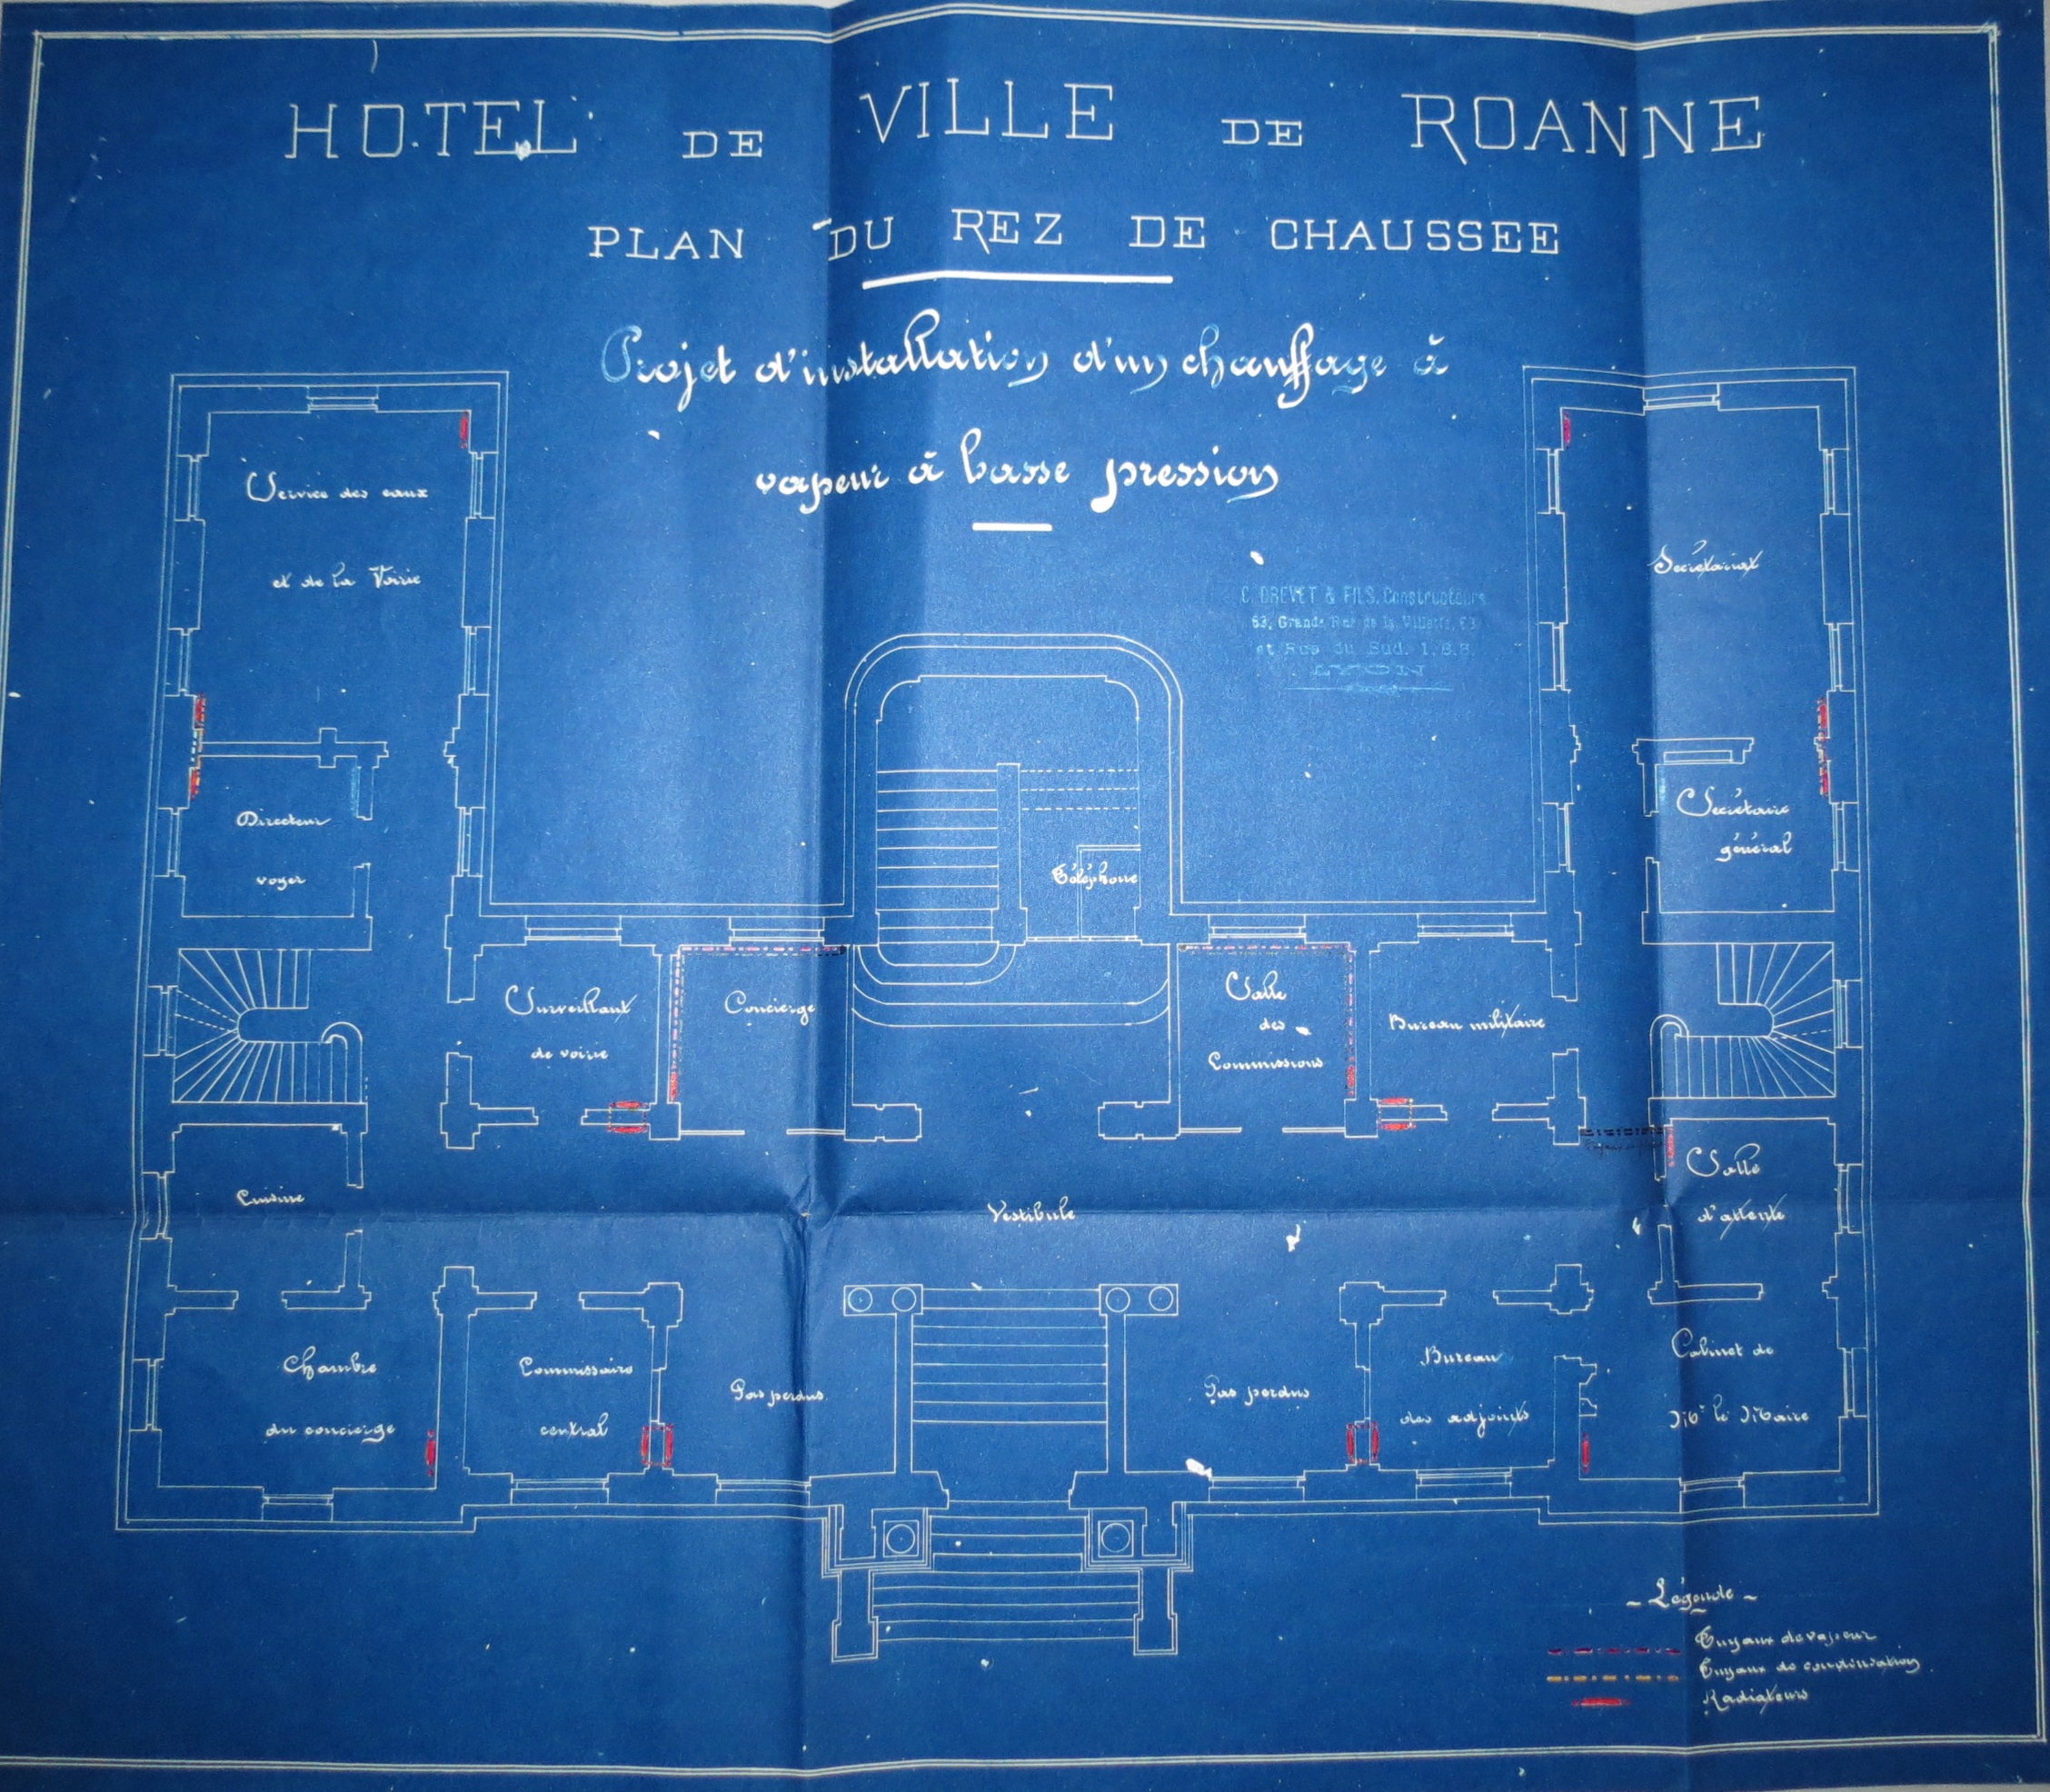 HOTEL DE VILLE DE ROANNE
PLAN DU REZ DE CHAUSSEE
Projet d'installation d'un chauffage à
vapeur à basse pression
C. DREVET & FILS, Constructeurs
63, Grande Rue de la Villette, 63
et Rue du Sud.
LYON
Service des eaux
et de la Voirie
Directeur
voyer
Secrétariat
Secrétaire
général
Téléphone
Surveillant
de voirie
Concierge
Salle
des
Commissions
Bureau militaire
Cuisine
Vestibule
Salle
d'attente
Chambre
du concierge
Commissaire
central
Pas perdus
Pas perdus
Bureau
des adjoints
Cabinet de
Mr le Maire
- Légende -
Tuyaux de vapeur
Tuyaux de condensation
Radiateurs